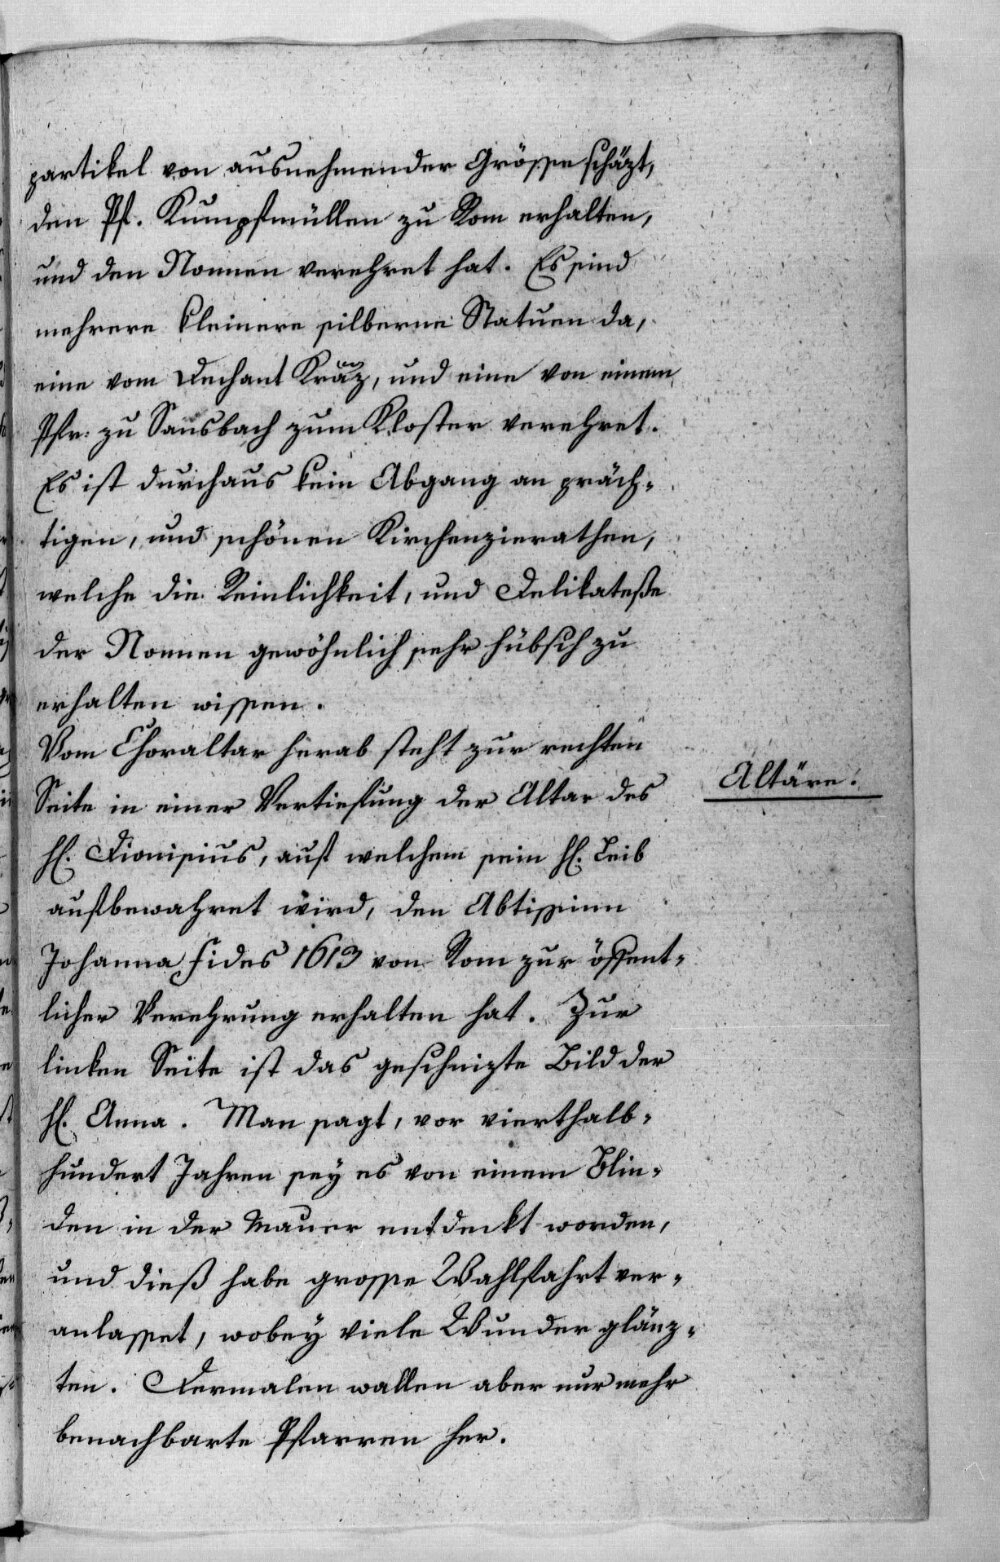 partikel von ausnehmender Grösse schäzt,
den Pf. Kumpfmüller zu Rom erhalten,
und den Nonnen verehret hat. Es sind
mehrere kleinere silberne Statuen da,
eine vom Dechant Kräz, und eine von einem
Pfr: zu Sausbach zum Kloster verehret.
Es ist durchaus kein Abgang an präch-
tigen, und schönen Kirchenzierathen,
welche die Reinlichkeit, und Delikateße
der Nonnen gewöhnlich sehr hübsch zu
erhalten wissen.
Vom Choraltar herab steht zur rechten
Altäre.
Seite in einer Vertiefung der Altar des
hl. Dionisius, auf welchem sein hl. Leib
aufbewahret wird, den Abtissinn
Johanna Fides 1613 von Rom zur öffent-
licher Verehrung erhalten hat. Zur
linken Seite ist das geschnizte Bild der
hl. Anna. Man sagt, vor vierthalb-
hundert Jahren sey es von einem Blin-
den in der Mauer entdeckt worden,
und dieß habe grosse Wahlfahrt ver-
anlasset, wobey viele Wunder glänz-
ten. Dermalen wallen aber nur mehr
benachbarte Pfarren her.